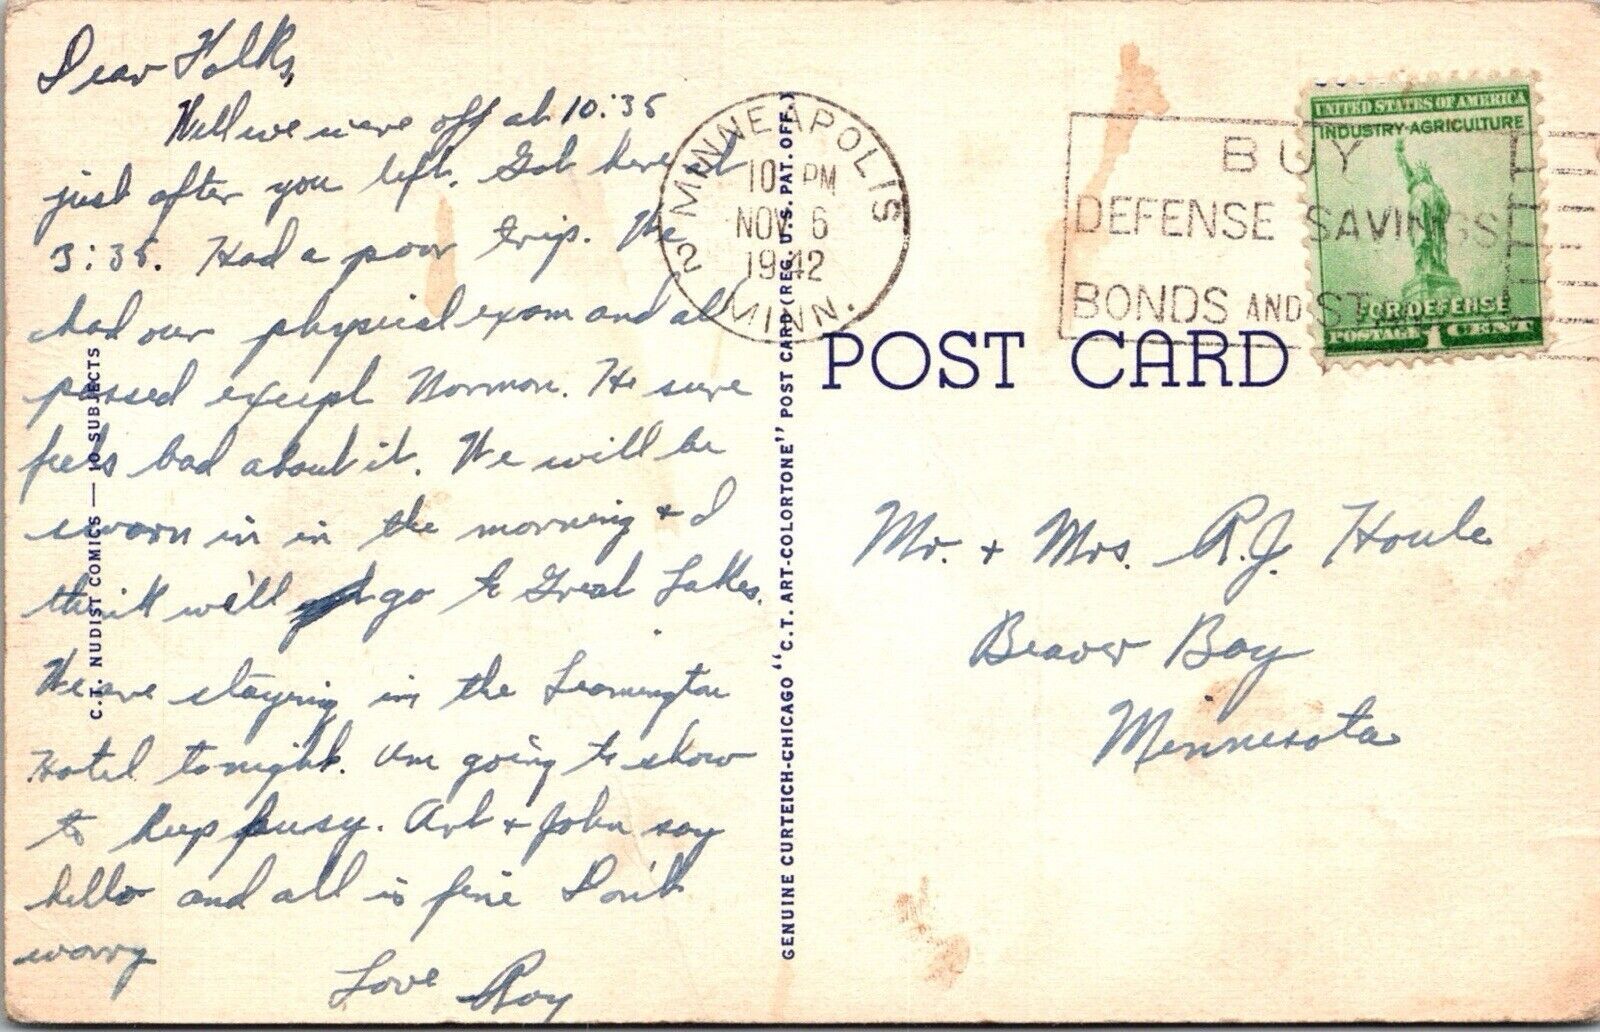 Dear Folks,
Well we were off at 10:35
just after you left. Got here at
3:35. Had a poor trip. We
had our physical exam and all
passed except Norman. He sure
feels bad about it. We will be
sworn in in the morning + I
think we'll go to Great Lakes.
We are staying in the Leamington
Hotel tonight. Am going to show
to keep busy. Art + John say
hello and all is fine Don't
worry
Love Roy
C.T. NUDIST COMICS — 10 SUBJECTS
GENUINE CURTEICH-CHICAGO "C.T. ART-COLORTONE" POST CARD (REG. U.S. PAT. OFF.)
MINNEAPOLIS
10 PM
NOV 6
1942
2 MINN.
BUY
DEFENSE SAVINGS
BONDS AND ST
UNITED STATES OF AMERICA
INDUSTRY-AGRICULTURE
FOR DEFENSE
POSTAGE 1 CENT
POST CARD
Mr. + Mrs. R.J. Houle
Beaver Bay
Minnesota